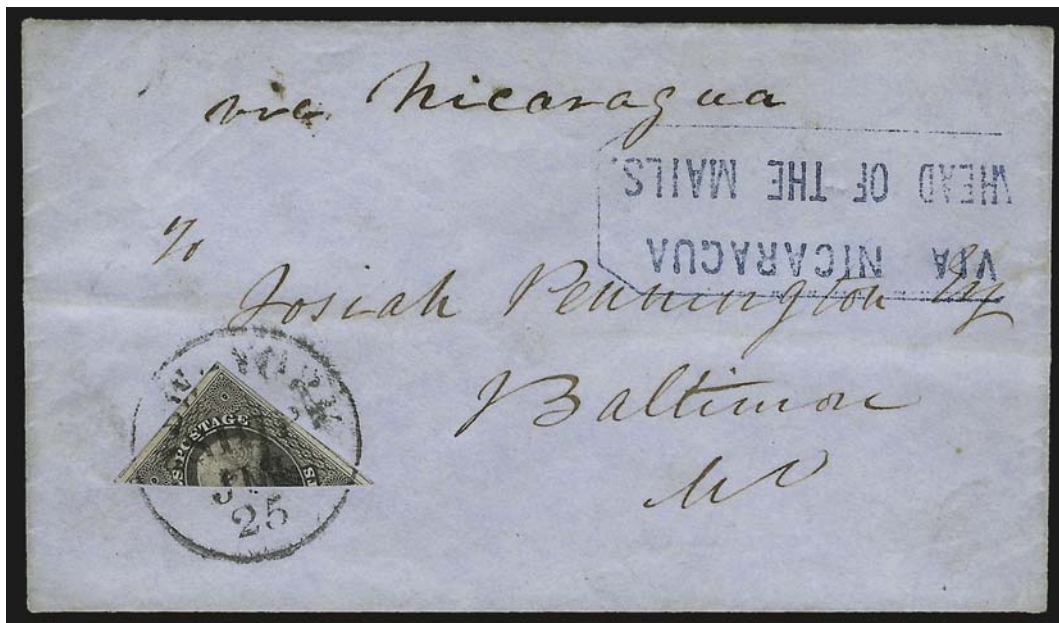 via Nicaragua
VIA NICARAGUA
AHEAD OF THE MAILS.
To
Josiah Pennington Esq
Baltimore
Md
NEW YORK
25
S. POSTAGE